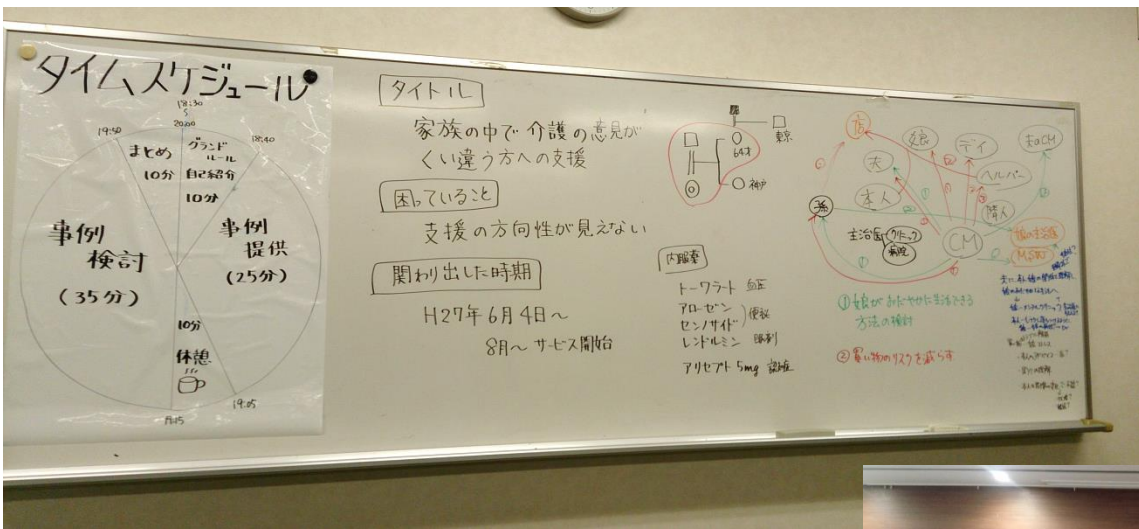 タイムスケジュール
18:30
〜
20:00
19:50
18:40
まとめ
10分
グランド
ルール
自己紹介
10分
事例
検討
(35分)
事例
提供
(25分)
10分
休憩
19:15
19:05
タイトル
家族の中で介護の意見が
くい違う方への支援
困っていること
支援の方向性が見えない
関わり出した時期
H27年6月4日〜
8月〜 サービス開始
東京
64才
神戸
内服薬
トーワラート 血圧
アローゼン
センノサイド
便秘
レンドルミン 眠剤
アリセプト 5mg 認知症
娘
デイ
夫のCM
夫
ヘルパー
本人
隣人
孫
主治医
クリニック
病院
CM
娘の主治医
MSW
① 娘がおだやかに生活できる
方法の検討
② 買い物のリスクを減らす